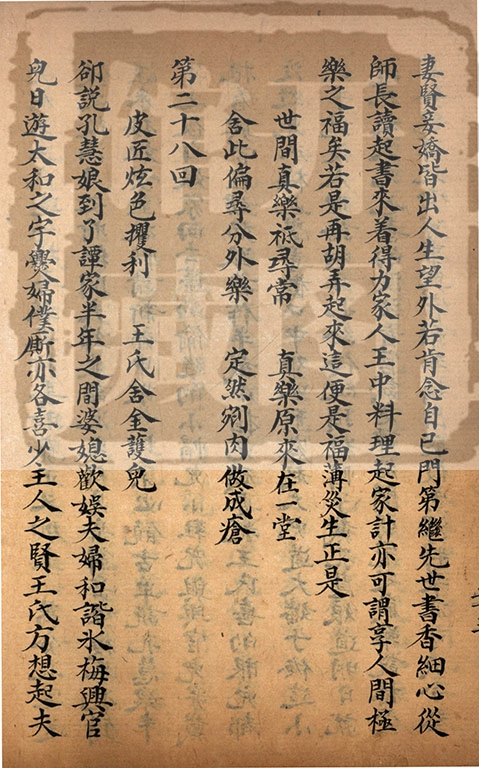 妻賢妾嬌皆出人生望外若肯念自己門第繼先世書香細心從
師長讀起書來着得力家人王中料理起家計亦可謂享人間極
樂之福矣若是再胡弄起來這便是福薄災生正是
世間真樂祗尋常　真樂原來在一堂
舍此偏尋分外樂　定然剜肉做成瘡
第二十八回
皮匠炫色攫利　王氏舍金護兒
卻説孔慧娘到了譚家半年之間婆媳歡娛夫婦和諧氷梅興官
兒日遊太和之宇㸑婦僕廝亦各喜少主人之賢王氏方想起夫